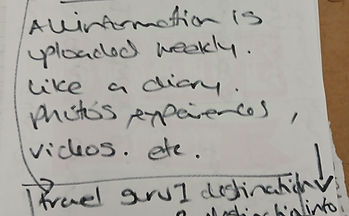 All information is
uploaded weekly.
Like a diary.
photos experiences,
videos. etc.
travel guru 1 destination
destination info.